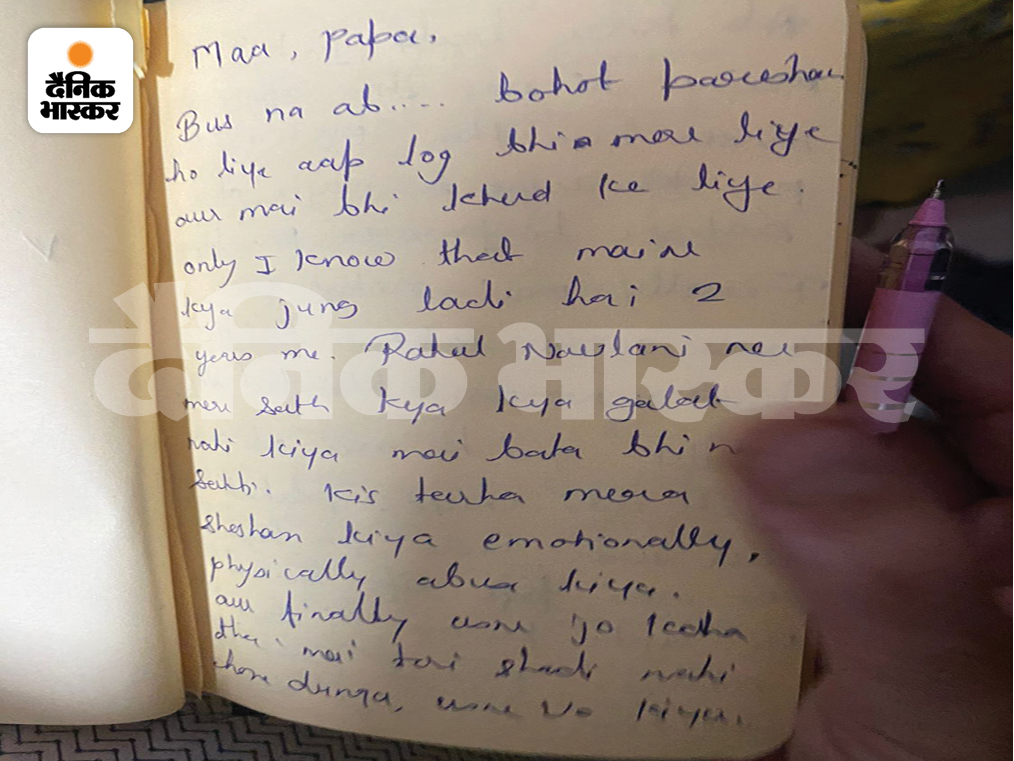 दैनिक
भास्कर
Maa, Papa,
Bus na ab.... bohot pareshan
ho liye aap log bhi mere liye
aur mai bhi khud ke liye.
only I know that maine
kya jung ladi hai 2
years me. Rahul Navlani ne
mere sath kya kya galat
nahi kiya mai bata bhi n
sakti. kis tarha mera
shoshan kiya emotionally,
physically abuse kiya.
aur finally usne jo kaha
tha mai teri shadi nahi
hone dunga, usne vo kiya.
दैनिक भास्कर